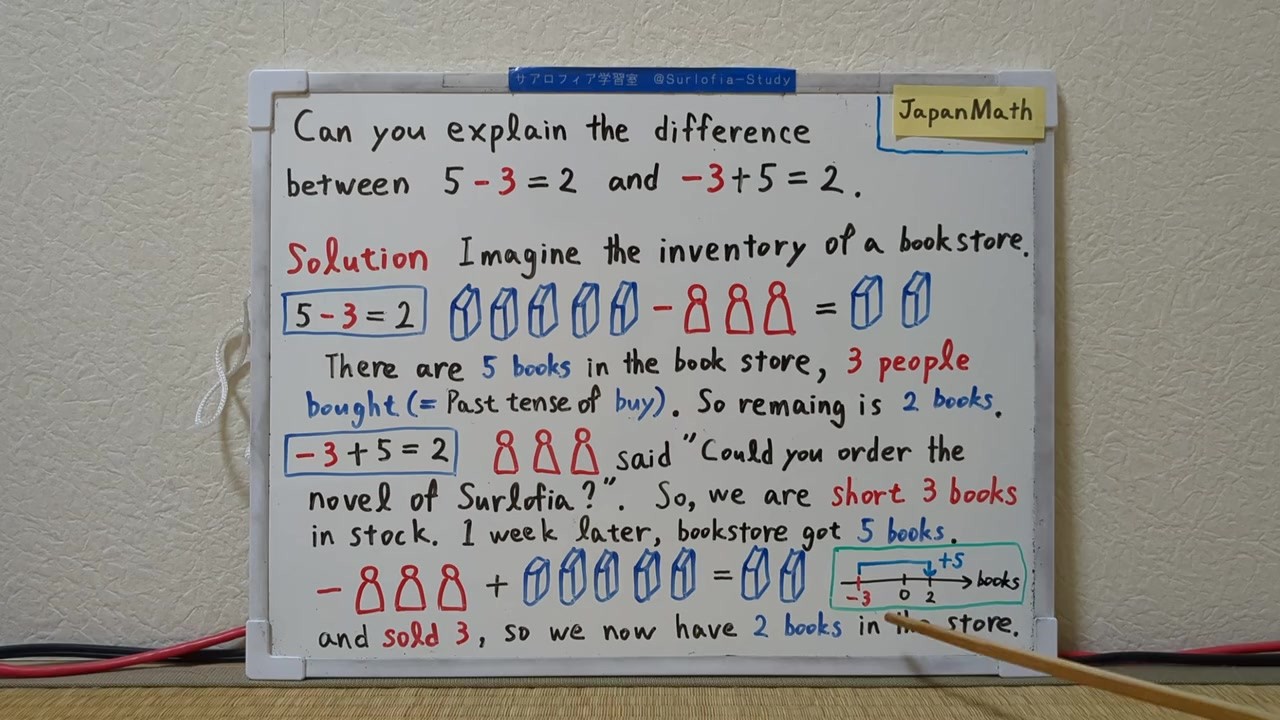 サアロフィア学習室 @Surlofia-Study
JapanMath
Can you explain the difference
between 5 - 3 = 2 and -3 + 5 = 2.
Solution Imagine the inventory of a bookstore.
5 - 3 = 2 - =
There are 5 books in the book store, 3 people
bought (= Past tense of buy). So remaing is 2 books.
-3 + 5 = 2 said "Could you order the
novel of Surlofia?". So, we are short 3 books
in stock. 1 week later, bookstore got 5 books.
- + =
+5
books
-3 0 2
and sold 3, so we now have 2 books in the store.